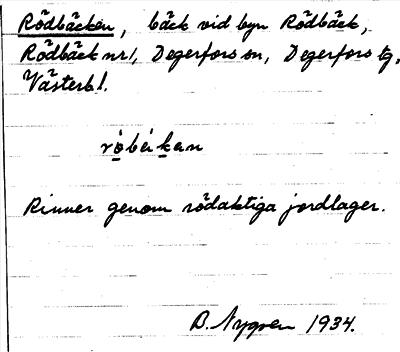 Rödbäcken, bäck vid byn Rödbäck,
Rödbäck nr1, Degerfors sn, Degerfors tg,
Västerb l.
röbäkan
Rinner genom rödaktiga jordlager.
B. Nygren 1934.